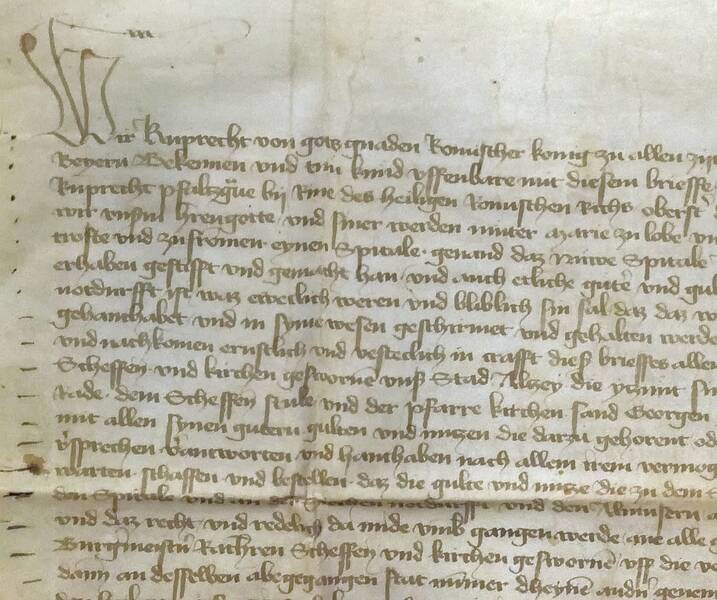 Wir Ruprecht von gots gnaden Romischer konig zu allen
Beyern Bekennen und tun kund uffenbare mit diesem brieffe
Ruprecht pfaltzgrave by Rine des heiligen Romischen Richs oberst
wir unserm herengotte und siner werden muter Marie zu lobe
troste und zu fromen eynen Spitale genand daz nuwe Spitale
erhaben gestifft und gemacht han und auch etliche gute und
notdurfft ist waz eweclich weren und bliblich sin sal daz daz
gehanthabet und in syme wesen geschirmet und gehalten werde
und nachkomen ernstlich und vesteclich in crafft dieß brieffes allen
Scheffen und kirchen gesworne unß Stad Alzey die ytzunt sin
Rade dem Scheffen stule und der pfarre kirchen sand Georgen
mit allen synen gutern gulten und nutzen die darzu gehorent
v'sprechen v'antworten und hanthaben nach allem irem
warten schaffen und bestellen daz die gulte und nutze die zu dem
den Spitale und an der Siechen notdurfft und den Almusern
und daz recht und redelich da mide umb gangen werde
Burgmeistn Ratheren Scheffen und kirchen gesworne usz die
dann an desselben abegegangen stat nummer dheyne